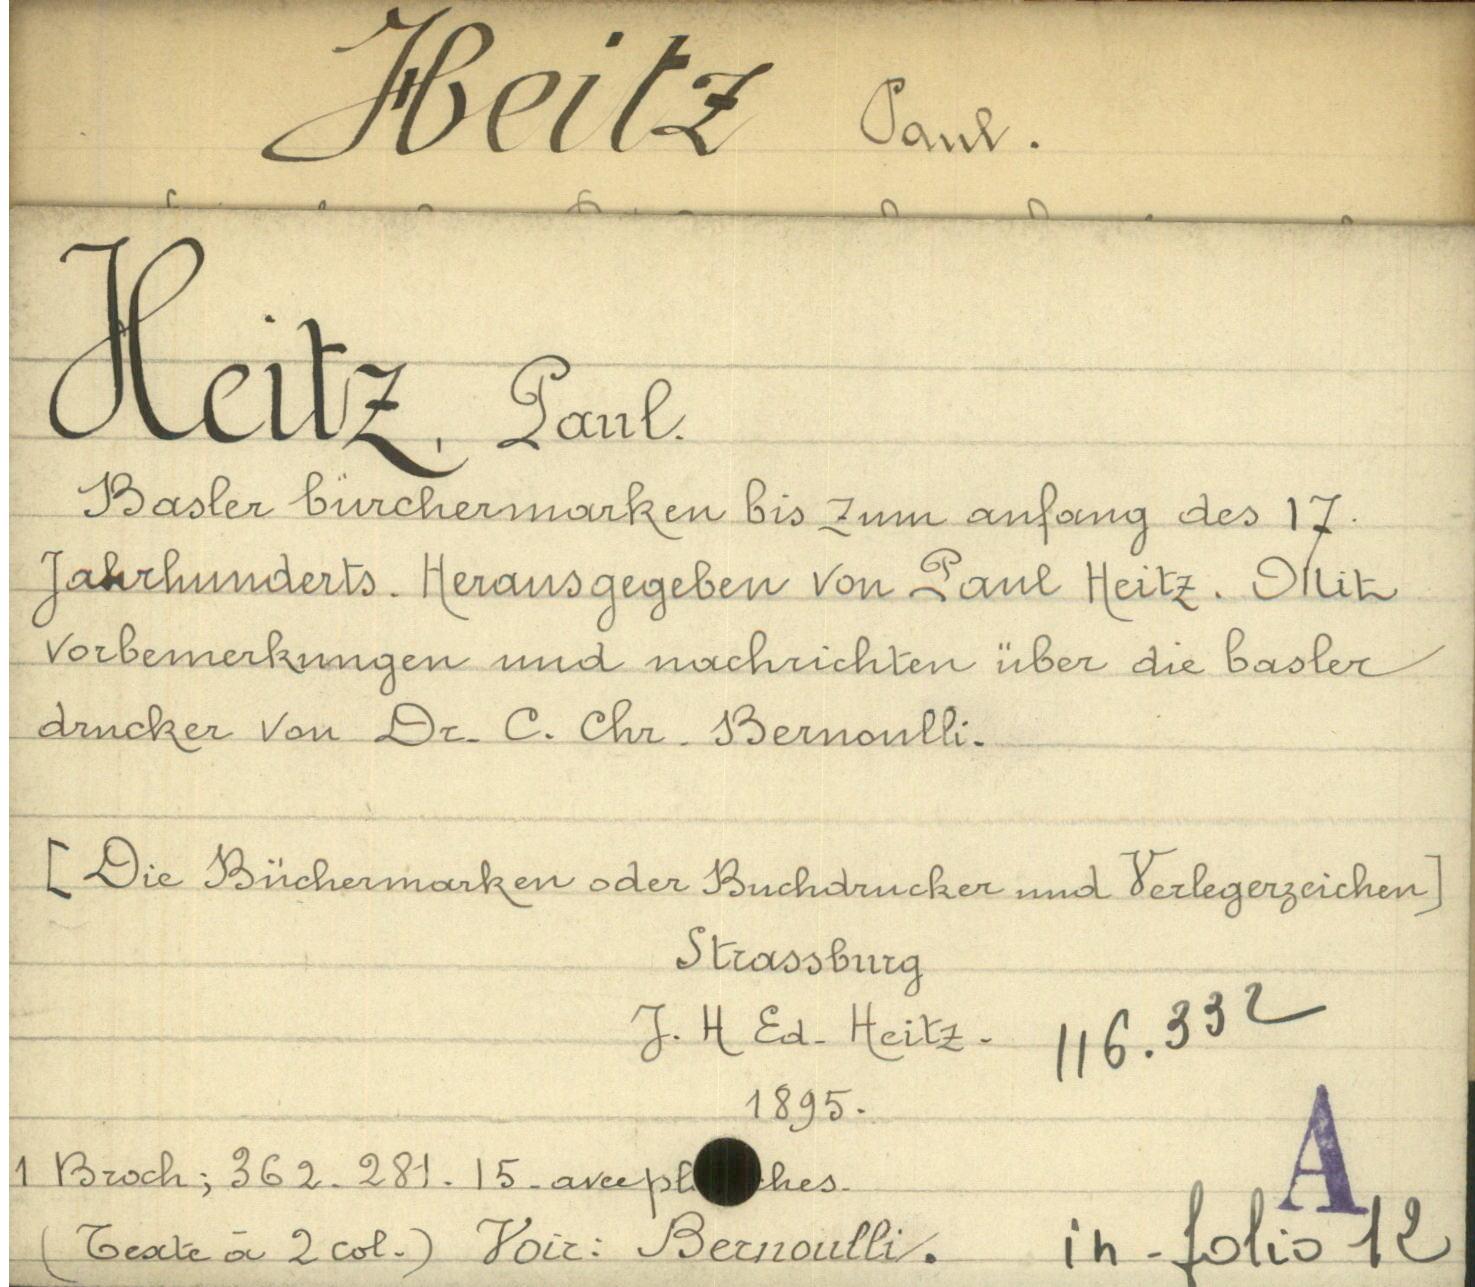 Heitz Paul.
Heitz, Paul.
Basler bürchermarken bis zum anfang des 17.
Jahrhunderts. Herausgegeben von Paul Heitz. Mit
vorbemerkungen und nachrichten über die basler
drucker von Dr. C. Chr. Bernoulli.
[Die Büchermarken oder Buchdrucker und Verlegerzeichen]
Strassburg
J. H Ed. Heitz.
116.332
1895.
A
1 Broch; 362. 281. 15. avec pl ches.
(Texte à 2 col.) Voir: Bernoulli. in-folio 12